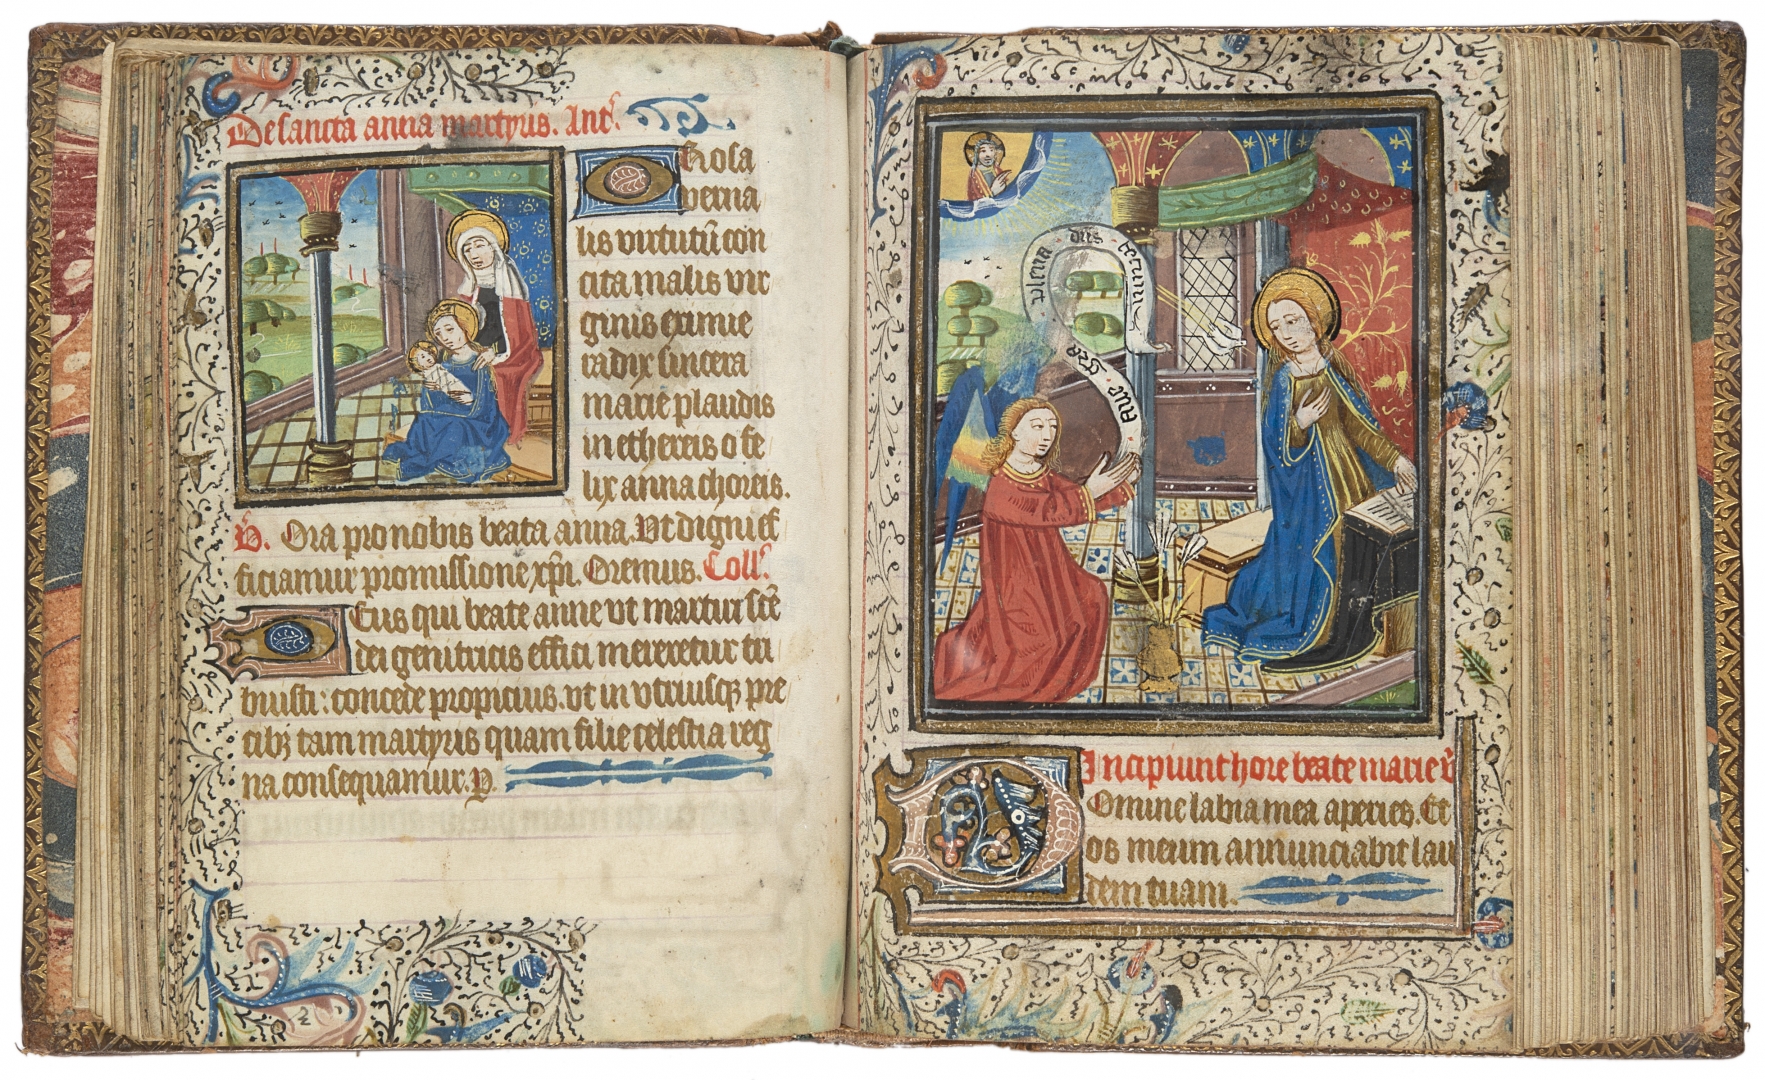 De sancta anna martyus. Ant͛.
O Rosa
verna
lis virtutū con
cita malis vir
ginis eximie
radix sincera
marie plaudis
in ethereis o fe
lix anna choreis.
V̄. Ora pro nobis beata anna. Ut digni ef
ficiamur promissione xp̄i. Oremus. Coll͛.
Deus qui beate anne vt martur sc̄e
dei genitricis effici mereretur tri
buisti: concede propicius. vt in vtriusqꝫ pre
cibꝫ tam martyris quam filie celestia reg
na consequamur. P.
Aue gr̄a plena dn̄s tecum
Incipiunt hore beate marie v̄
Domine labia mea aperies. Et
os meum annunciabit lau
dem tuam.